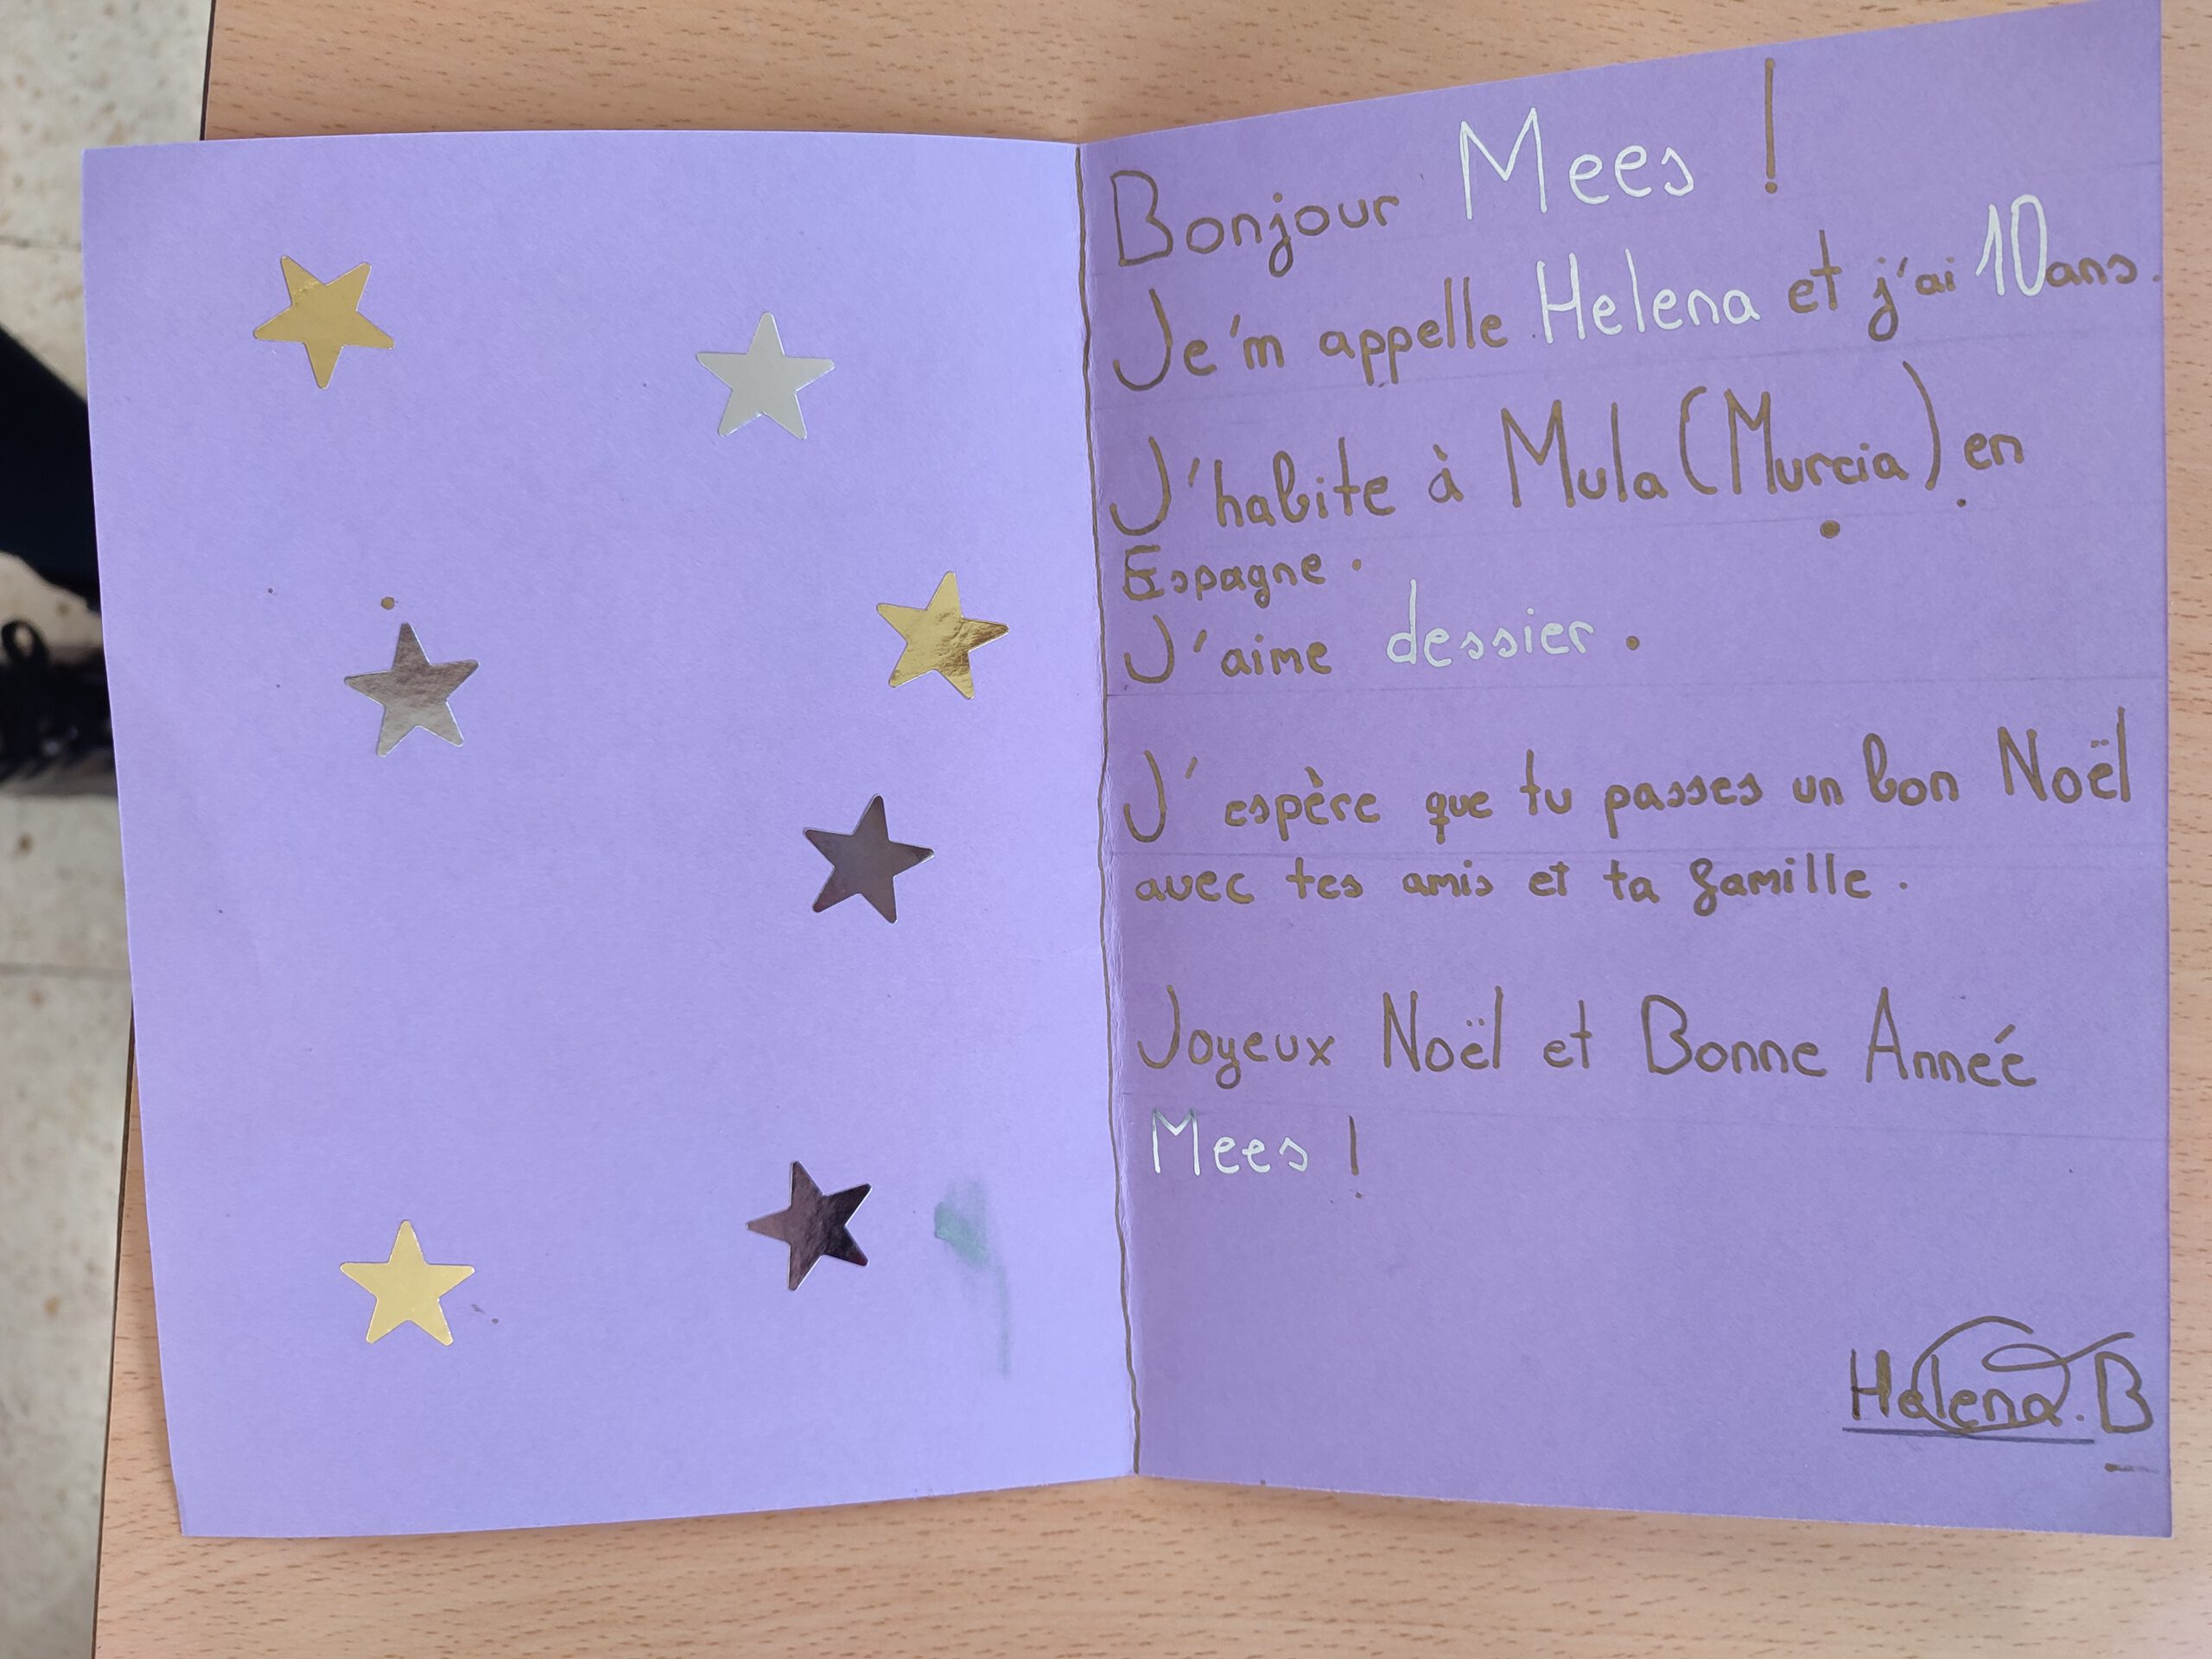 Bonjour Mees !
Je'm appelle Helena et j'ai 10 ans.
J'habite à Mula (Murcia) en
Espagne.
J'aime dessier.
J'espère que tu passes un bon Noël
avec tes amis et ta famille.
Joyeux Noël et Bonne Anneé
Mees !
Helena.B